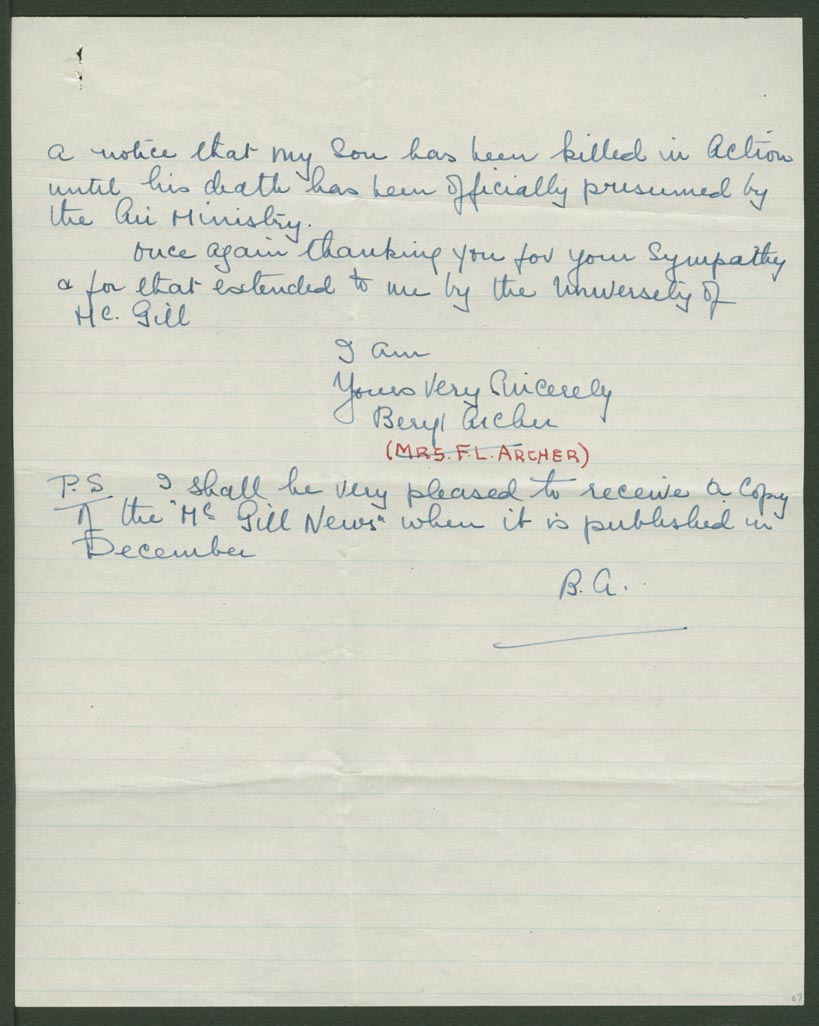 a notice that my Son has been killed in Action
until his death has been officially presumed by
the Air Ministry.
Once again thanking you for your Sympathy
& for that extended to me by the University of
Mc. Gill
I am
Yours Very Sincerely
Beryl Archer
(MRS. F. L. ARCHER)
P.S I shall be very pleased to receive a Copy
of the "Mc Gill News" when it is published in
December
B. A.